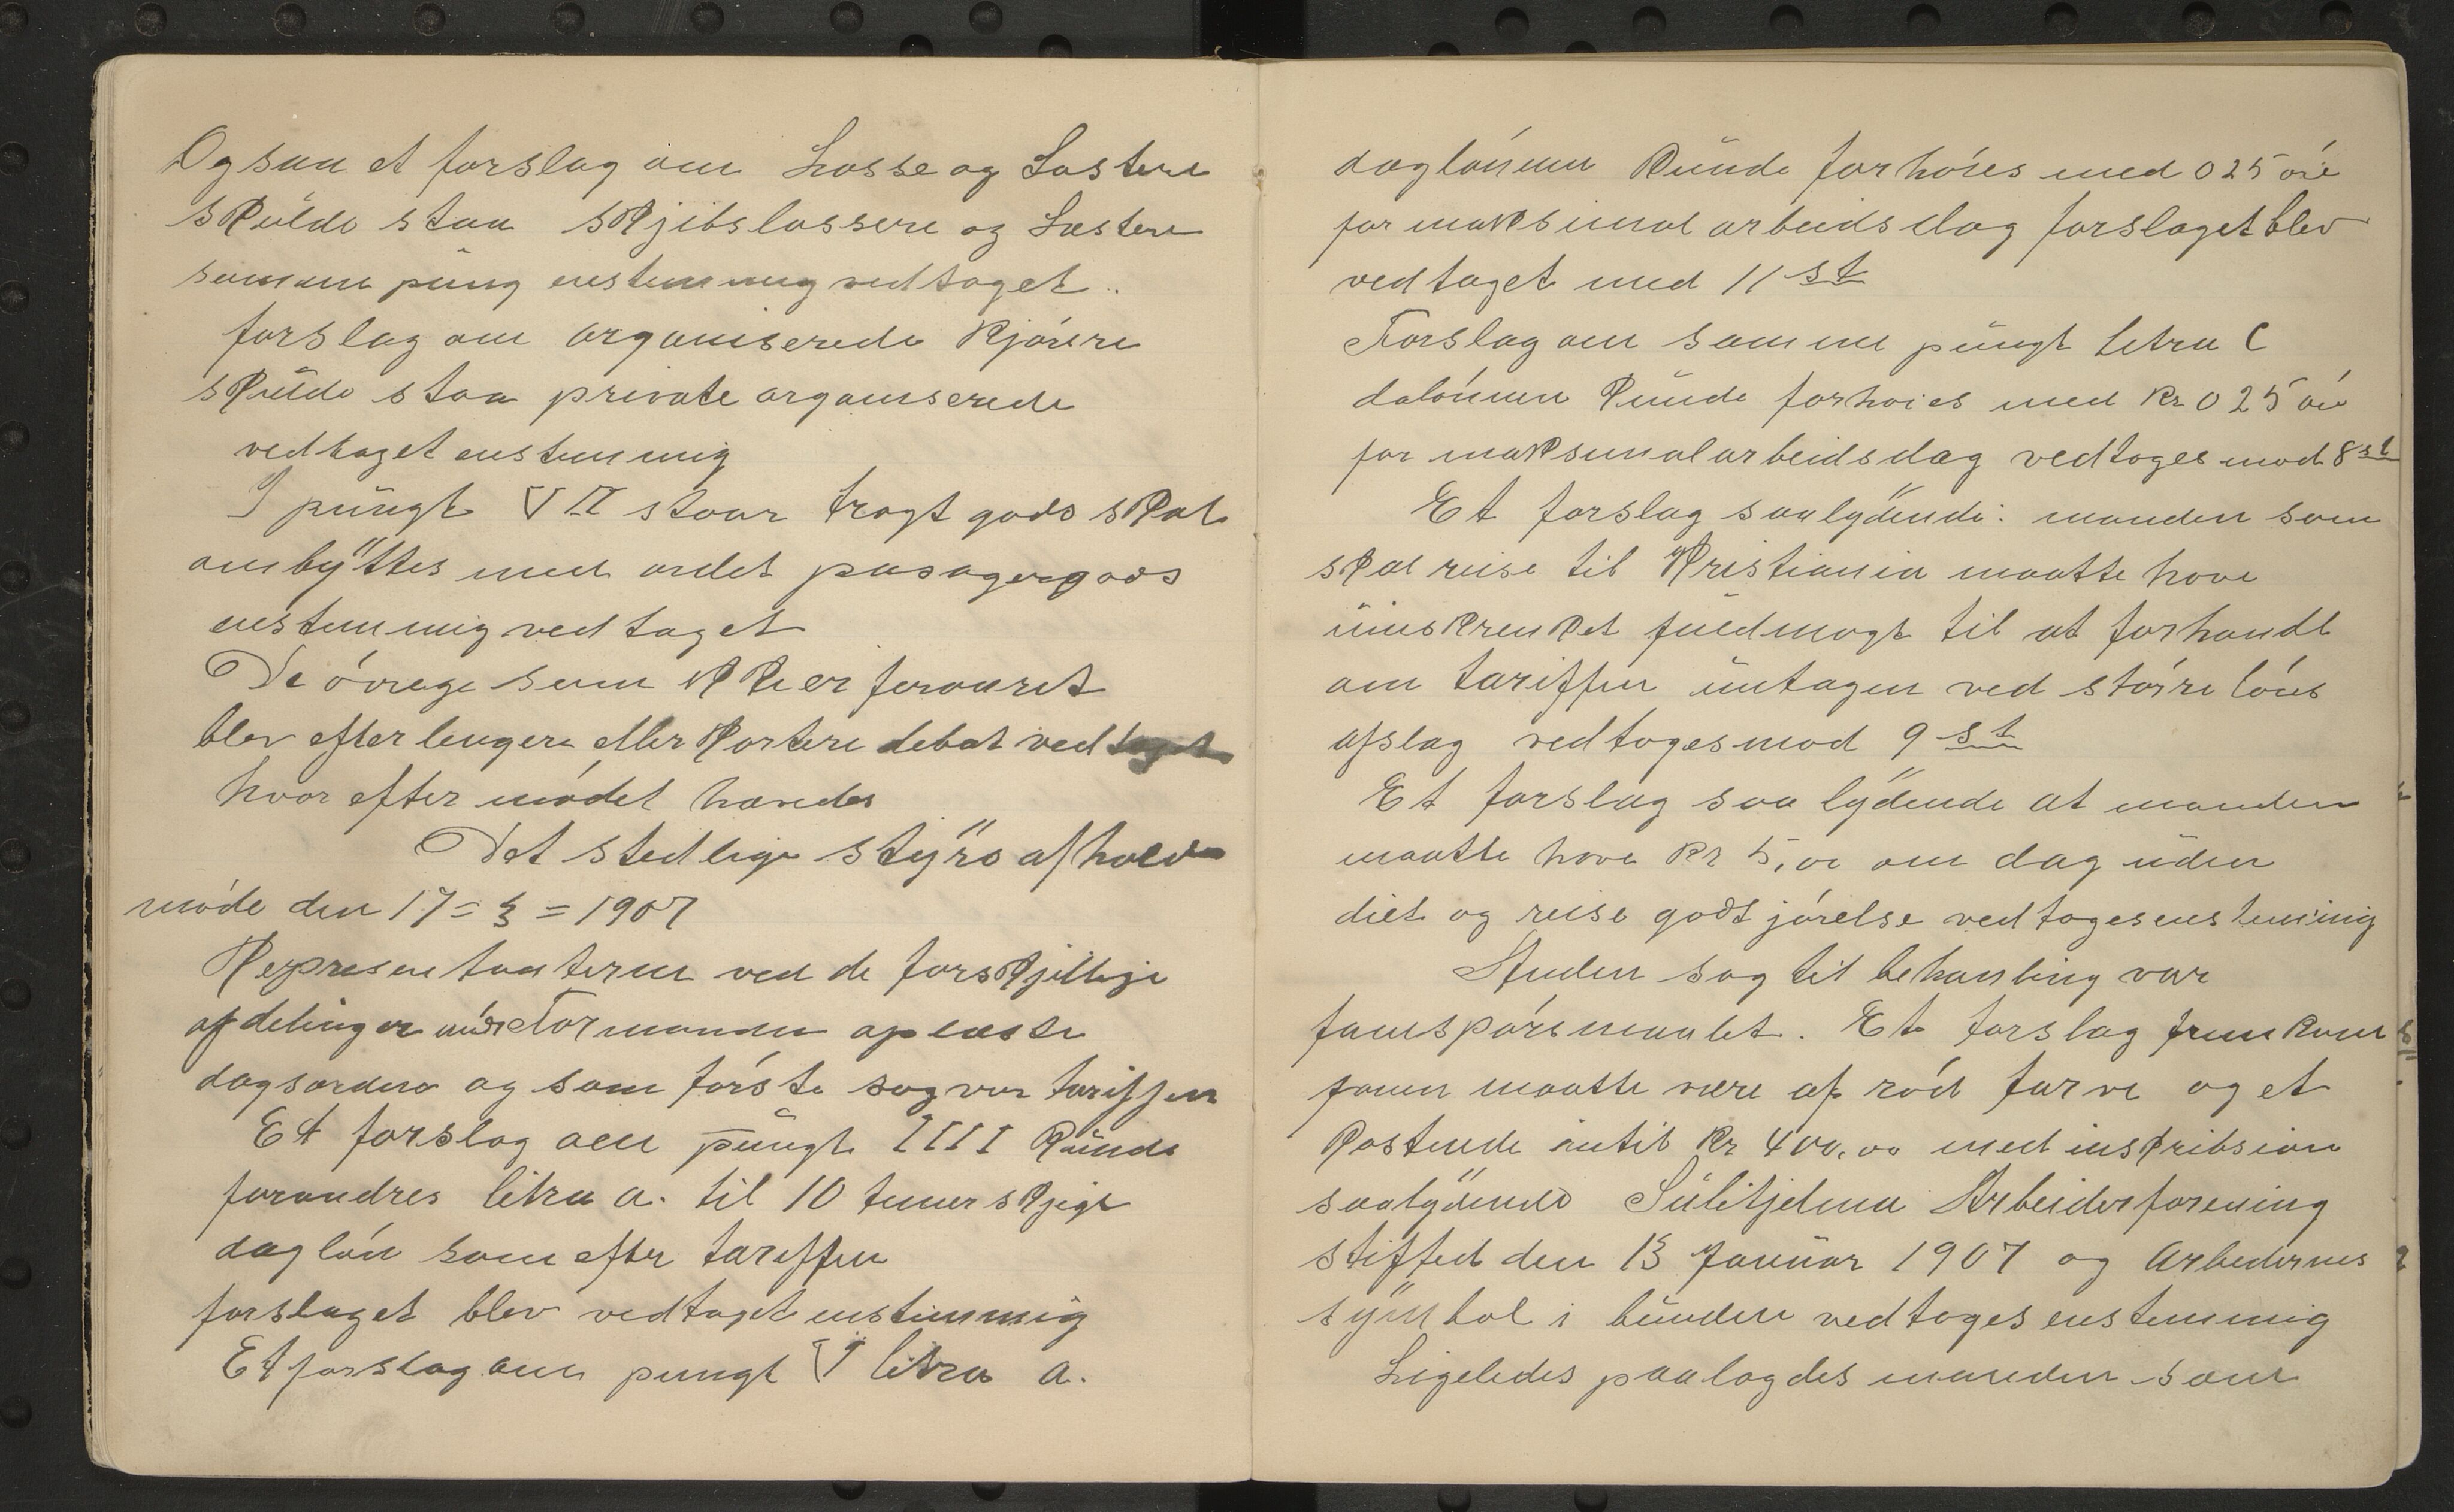 Ogsaa et forslag om Losse og Lastere
skulde staa Skjibslossere og Lastere
samme pung enstemmig vedtaget.
forslag om organiserede kjörere
skulde staa private organiserede
vedtaget enstemmig
I pungt VII staar fragt gods skal
ombyttes med ordet pasagergods
enstemmig vedtaget
De övrege som ikke er forauret
blev efter lengere eller kortere debat vedtaget
hvor efter mödet hævedes
Det stedlige styre afholdt
möde den 17=3=1907
Representanterne ved de forskjillige
afdelinger mödt Formanden oplæste
dagsorden og som förste sag var tariffen
Et forslag om pungt IIII kunde
forandres litra a. til 10 timer skjigt
daglön som efter tariffen
forslaget blev vedtaget enstemmig
Et forslag om pungt V litra a.
daglönnen kunde forhöies med 0 25 öre
for maksimal arbeidsdag forslaget blev
vedtaget med 11 st
Forslag om samme pungt letra C
dalönnen kunde forhöies med kr 0 25 öre
for maksimalarbeidsdag vedtoges mod 8 st
Et forslag saalydende: manden som
skal reise til Kristiania maatte have
uinskrenket fuldmagt til at forhandle
om tariffen untagen ved större löns
afslag vedtoges mod 9 st
Et forslag saa lydende at manden
maatte have kr 5,00 om dag uden
diet og reise godtjörelse vedtoges enstemmig
Anden sag til behanling var
fanespörsmaalet. Et forslag fremkom
fanen maatte være af röd farve og et
kostende intil kr 400,00 med inskribsion
saalydende Sulitjelma Arbeiderforening
stiftet den 13 Januar 1907 og Arbedernes
symbol i bunden vedtoges enstemmig
Ligeledes paalagdes manden som